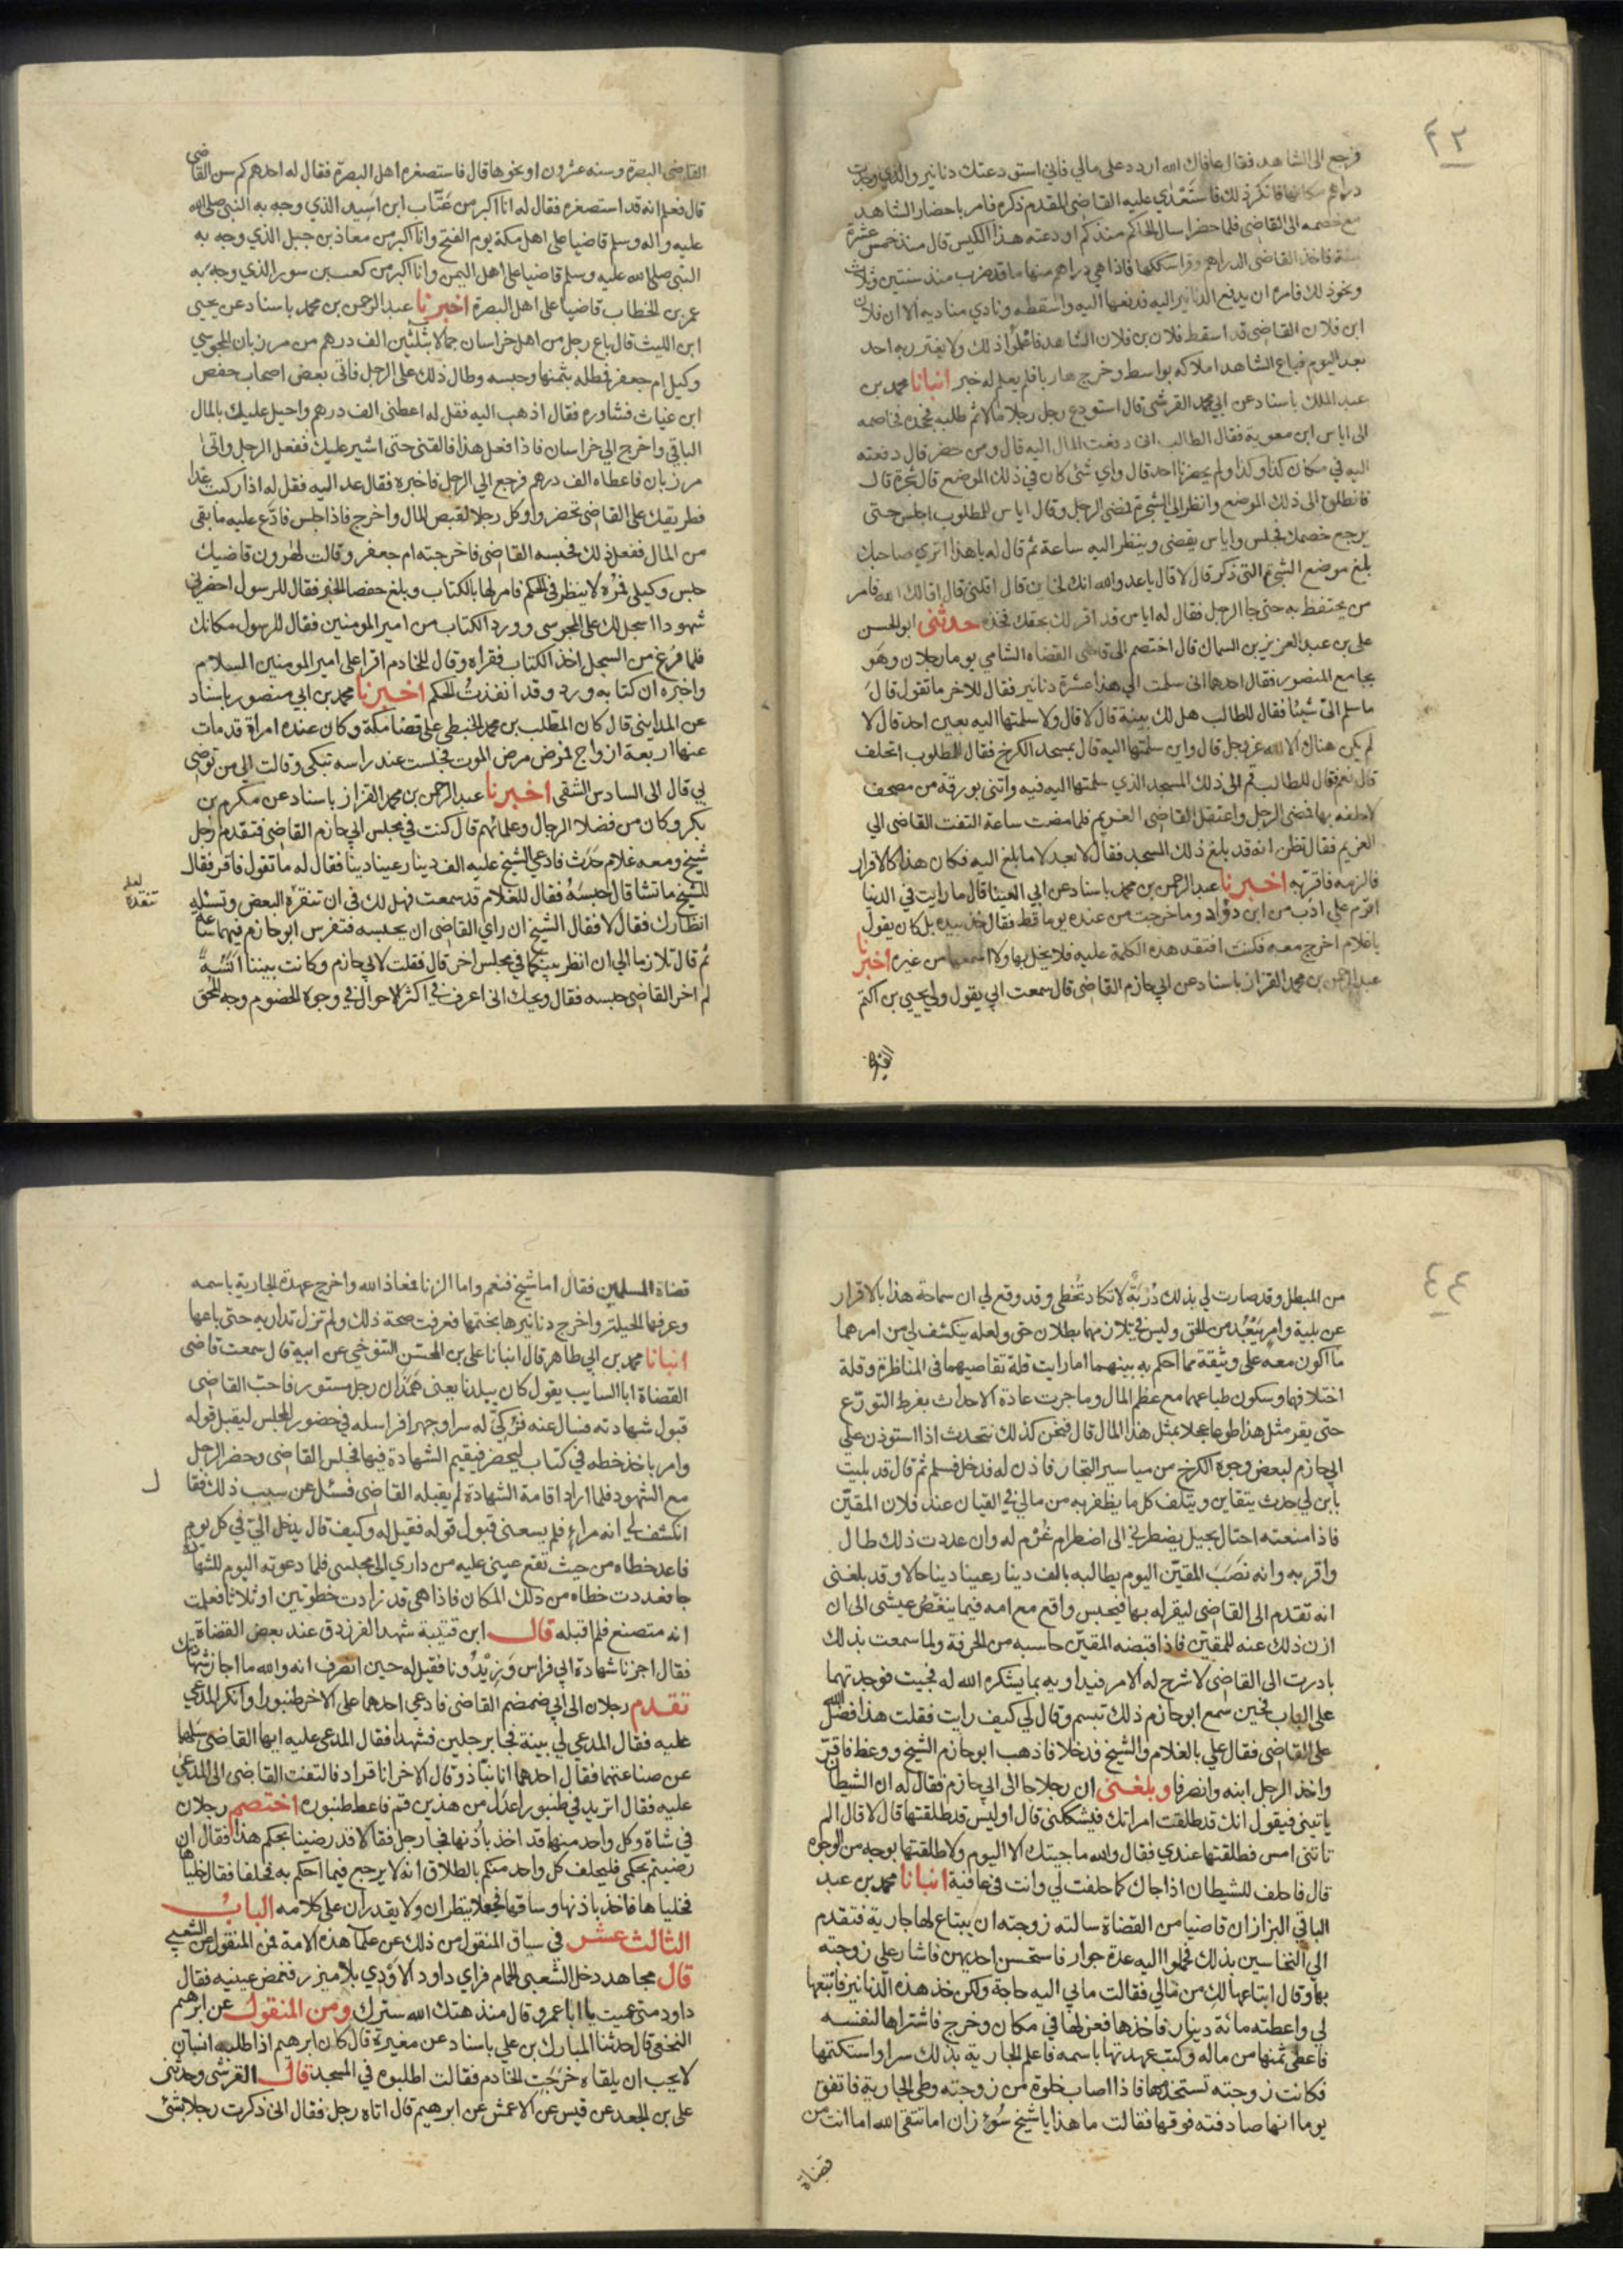 ٤٣
فرجع الى الشاهد فقال عافاك الله اردد على مالي فاني استودعتك دنانير والذي وجدت
دراهم مكانها فانكر ذلك فاستعدي عليه القاضي المقدم ذكره فامر باحضار الشاهد
مع خصمه الى القاضي فلما حضر اسال الحاكم منذ كم اودعته هذا الكيس قال منذ خمس عشرة
سنة فاخذ القاضي الدراهم وقرا سككها فاذا هي دراهم منها ما قد ضرب منذ سنتين وثلاث
ونحو ذلك فامره ان يدفع الدنانير اليه فدفعها اليه واسقطه ونادي مناديه الا ان فلان
ابن فلان القاضي قد اسقط فلان بن فلان الشاهد فاعلموا ذلك ولا يغتر به احد
بعد اليوم فباع الشاهد املاكه بواسط وخرج هاربا فلم يعلم له خبر انبانا محمد بن
عبد الملك باسناد عن ابي محمد القرشي قال استودع رجل رجلا مالا ثم طلبه فجحده فخاصمه
الى اياس ابن معوية فقال الطالب اني دفعت المال اليه قال ومن حضر قال دفعته
اليه في مكان كذا وكذا ولم يحضرنا احد قال واي شئ كان في ذلك الموضع قال شجرة قال
فانطلق الى ذلك الموضع وانظر الي الشجرة فمضى الرجل وقال اياس للمطلوب اجلس حتى
يرجع خصمك فجلس واياس يقضي وينظر اليه ساعة ثم قال له يا هذا اترى صاحبك
بلغ موضع الشجرة التي ذكر قال لا قال يا عدو الله انك لخاين قال اقلني قال لا اقالك الله فامر
من يحتفظ به حتى جا الرجل فقال له اياس قد اقر لك بحقك فخذه حدثني ابو الحسن
علي بن عبد العزيز بن السماك قال اختصم الى قاضي القضاه الشامي يوما رجلان وهو
بجامع المنصور فقال احدهما اني سلمت الي هذا عشرة دنانير فقال للاخر ما تقول قال
ما سلم الي شيئا فقال للطالب هل لك بينة قال لا قال ولا سلمتها اليه بعين احد قال لا
لم يكن هناك الا الله عز وجل قال واين سلمتها اليه قال بمسجد الكرخ فقال للمطلوب اتحلف
قال نعم فقال للطالب قم الى ذلك المسجد الذي سلمتها اليه فيه واتني بورقة من مصحف
لاحلفه بها فمضى الرجل واعتقل القاضي الغريم فلما مضت ساعة التفت القاضي الي
الغريم فقال تظن انه قد بلغ ذلك المسجد فقال لا بعد لا ما بلغ اليه فكان هذا كالاقرار
فالزمه فاقر به اخبرنا عبد الرحمن بن محمد باسناد عن ابي العينا قال ما رايت في الدنيا
اقوم علي ادب من ابن دؤاد وما خرجت من عنده يوما قط فقال خذ بيده بل كان يقول
يا غلام اخرج معه فكنت افتقد هذه الكلمة عليه فلا يخل بها ولا اسمعها من غيره اخبرنا
عبد الرحمن بن محمد القزاز باسناد عن ابي حازم القاضي قال سمعت ابي يقول ولي يحيي بن اكثم
القاضى البصرة وسنه عشرون او نحوها قال فاستصغره اهل البصرة فقال له احدهم كم سن القاضي
قال فعلم انه قد استصغره فقال له انا اكبر من عتّاب ابن اسيد الذي وجه به النبي صلى الله
عليه واله وسلم قاضيا على اهل مكة يوم الفتح وانا اكبر من معاذ بن جبل الذي وجه به
النبي صلى الله عليه وسلم قاضيا على اهل اليمن وانا اكبر من كعب بن سور الذي وجه به
عمر بن الخطاب قاضيا على اهل البصرة اخبرنا عبد الرحمن بن محمد باسناد عن يحيى
ابن الليث قال باع رجل من اهل خراسان جمالا بثلثين الف درهم من مرزبان المجوسي
وكيل ام جعفر فمطله بثمنها وحبسه وطال ذلك على الرجل فاتى بعض اصحاب حفص
ابن غياث فشاوره فقال اذهب اليه فقل له اعطني الف درهم واحيل عليك بالمال
الباقي واخرج الي خراسان فاذا فعل هذا فالقني حتى اشير عليك ففعل الرجل واتى
مرزبان فاعطاه الف درهم فرجع الي الرجل فاخبره فقال عد اليه فقل له اذا ركبت غدا
فطريقك على القاضي تحضر واوكل رجلا لقبض المال واخرج فاذا جلس فادّع عليه ما بقي
من المال ففعل ذلك فحبسه القاضي فاخرجته ام جعفر وقالت لهرون قاضيك
حبس وكيلي فمره لا ينظر في الحكم فامر لها بالكتاب وبلغ حفصا الخبر فقال للرسول احضرلي
شهودا اسجل لك على المجوسي وورد الكتاب من امير المومنين فقال للرسول مكانك
فلما فرغ من السجل اخذ الكتاب فقراه وقال للخادم اقرا على امير المومنين السلام
واخبره ان كتابه ورد وقد انفذت الحكم اخبرنا محمد بن ابي منصور باسناد
عن المدايني قال كان المطلب بن محمد الحنطبي على قضا مكة وكان عنده امراة قد مات
عنها اربعة ازواج فمرض مرض الموت فجلست عند راسه تبكي وقالت الى من توصي
بي قال الى السادس الشقي اخبرنا عبد الرحمن بن محمد القزاز باسناد عن مكرم بن
بكر وكان من فضلا الرجال وعلمائهم قال كنت في مجلس ابي حازم القاضي فتقدم رجل
شيخ ومعه غلام حدث فادعي الشيخ عليه الف دينار عينا دينا فقال له ما تقول فاقر فقال
للشيخ ما تشا قال احبسه فقال للغلام قد سمعت فهل لك في ان تنقره البعض وتسئله
لعله تنقده
انظارك فقال لا فقال الشيخ ان راي القاضي ان يحبسه فتفرس ابو حازم فيهما ساعة
ثم قال تلازما الي ان انظر بينكما في مجلس اخر قال فقلت لابي حازم وكانت بيننا انسة
لم اخر القاضي حبسه فقال ويحك اني اعرف في اكثر الاحوال في وجوه الخصوم وجه المحق
٤٤
من المبطل وقد صارت لي بذلك دُرْبَةٌ لا تكاد تُخطي وقد وقع لي ان سماحة هذا بالاقرار
عن بلية وامر يَبْعُد من الحق وليس في تلازمهما بطلان حق ولعله ينكشف لي من امرهما
ما اكون معه على وثيقة مما احكم به بينهما اما رايت قلة تقاصيهما في المناظرة وقلة
اختلافهما وسكون طباعهما مع عظم المال وما جرت عادة الاحداث بفرط التورّع
حتى يقر مثل هذا طوعا عجلا بمثل هذا المال قال فنحن كذلك نتحدث اذا استوذن علي
ابي حازم لبعض وجوه الكرخ من مياسير التجار فاذن له فدخل فسلم ثم قال قد بليت
بابن لي حدث يتقاين ويتلف كل ما يظفر به من مالي في القيان عند فلان المقيّن
فاذا منعته احتال بحيل يضطرني الى اضطرام غُرْم له وان عددت ذلك طال
واقربه وانه نصَبَ المقيّن اليوم يطالبه بالف دينار عينا دينا حالا وقد بلغني
انه تقدم الى القاضي ليقر له بها فيحبس واقع مع امه فيما ينغّص عيشي الى ان
ازن ذلك عنه للمقيّن فاذا قبضه المقيّن حاسبه من الحرفة ولما سمعت بذلك
بادرت الى القاضي لاشرح له الامر فيداويه بما يشكره الله له فجيت فوجدتهما
على الباب فحين سمع ابو حازم ذلك تبسم وقال لي كيف رايت فقلت هذا فضل الله
على القاضي فقال علي بالغلام والشيخ فدخلا فاذهب ابو حازم الشيخ ووعظ فاقرّ
واخذ الرجل ابنه وانصرفا وبلغني ان رجلا جا الى ابي حازم فقال له ان الشيطان
ياتيني فيقول انك قد طلقت امراتك فيشككني قال اوليس قد طلقتها قال لا قال الم
تاتني امس فطلقتها عندي فقال والله ما جيتك الا اليوم ولا طلقتها بوجه من الوجوه
قال فاحلف للشيطان اذا جاك كما حلفت لي وانت في عافية انبانا محمد بن عبد
الباقي البزاز ان قاضيا من القضاة سالته زوجته ان يبتاع لها جارية فتقدم
الي النخاسين بذلك فحملوا اليه عدة جوار فاستحسن احديهن فاشار علي زوجته
بها وقال ابتاعها لك من مالي فقالت ما بي اليه حاجة ولكن خذ هذه الدنانير فابتعها
لي واعطته مائة دينار فاخذها فعزلها في مكان وخرج فاشتراها لنفسه
فاعطى ثمنها من ماله وكتب عهدتها باسمه فاعلم الجارية بذلك سرا واستكتمها
فكانت زوجته تستخدمها فاذا اصاب خلوة من زوجته وطى الجارية فاتفق
يوما انها صادفته فوقها فقالت ما هذا يا شيخ سُوْء زان اما تتقي الله اما انت من
قضاة
قضاة المسلمين فقال اما شيخ فنعم واما الزنا فمعاذ الله واخرج عهدة الجارية باسمه
وعرفها الحيلة واخرج دنانيرها بختمها فعرفت صحة ذلك ولم تزل تداريه حتى باعها
انبانا محمد بن ابي طاهر قال انبانا علي بن المحسّن التنوخي عن ابيه قال سمعت قاضي
القضاة ابا السايب يقول كان ببلدنا يعني همذان رجل مستور فاحب القاضي
قبول شهادته فسال عنه فزُكّيَ له سرا وجهرا فراسله في حضور المجلس ليقبل قوله
وامر باخذ خطه في كتاب ليحضر فيقيم الشهادة فيها فجلس القاضي وحضر الرجل
مع الشهود فلما اراد اقامة الشهادة لم يقبله القاضي فسئل عن سبب ذلك فقال
انكشف لي انه مراءٍ فلم يسعني قبول قوله فقيل له وكيف قال يدخل اليّ في كل يوم
فاعد خطاه من حيث تقع عيني عليه من داري الى مجلسي فلما دعوته اليوم للشهادة
جا فعددت خطاه من ذلك المكان فاذا هي قد زادت خطوتين او ثلاثا فعلمت
انه متصنع فلم اقبله قال ابن قتيبة شهد الفرزدق عند بعض القضاة
فقال اجزنا شهادة ابي فراس وَزِيْدُونا فقيل له حين انصرف انه والله ما اجاز شهادتك
تقدم رجلان الى ابي ضمضم القاضي فادعي احدهما على الاخر طنبورا وانكر المدعي
عليه فقال المدعي لي بينة فجا برجلين فشهدا فقال المدعي عليه ايها القاضي سلهما
عن صناعتهما فقال احدهما انا نبّاذ وقال الاخر انا قراد فالتفت القاضي الى المدعي
عليه فقال اتريد في طنبور اعدَل من هذين قم فاعط طنبوره اختصم رجلان
في شاة وكل واحد منهما قد اخذ باذنها فجا رجل فقالا قد رضينا بحكم هذا فقال ان
رضيتم بحكمي فليحلف كل واحد منكم بالطلاق انه لا يرجع فيما احكم به فحلفا فقال خلياها
فخلياها فاخذ باذنها وساقها فجعلا ينظران ولا يقدران على كلامه الباب
الثالث عشر في سياق المنقول من ذلك عن علما هذه الامة فمن المنقول عن الشعبي
قال مجاهد دخل الشعبي الحمام فراي داود الاودي بلا ميزر فغمض عينيه فقال
داود متى عميت يا ابا عمرو قال منذ هتك الله سترك ومن المنقول عن ابرهيم
النخعي قال حدثنا المبارك بن علي باسناد عن مغيرة قال كان ابرهيم اذا طلبه انسان
لا يحب ان يلقاه خرَجَتِ الخادم فقالت اطلبوه في المسجد قال القرشي وحدثني
علي بن الجعد عن قيس عن الاعمش عن ابرهيم قال اتاه رجل فقال اني ذكرت رجلا بشئ